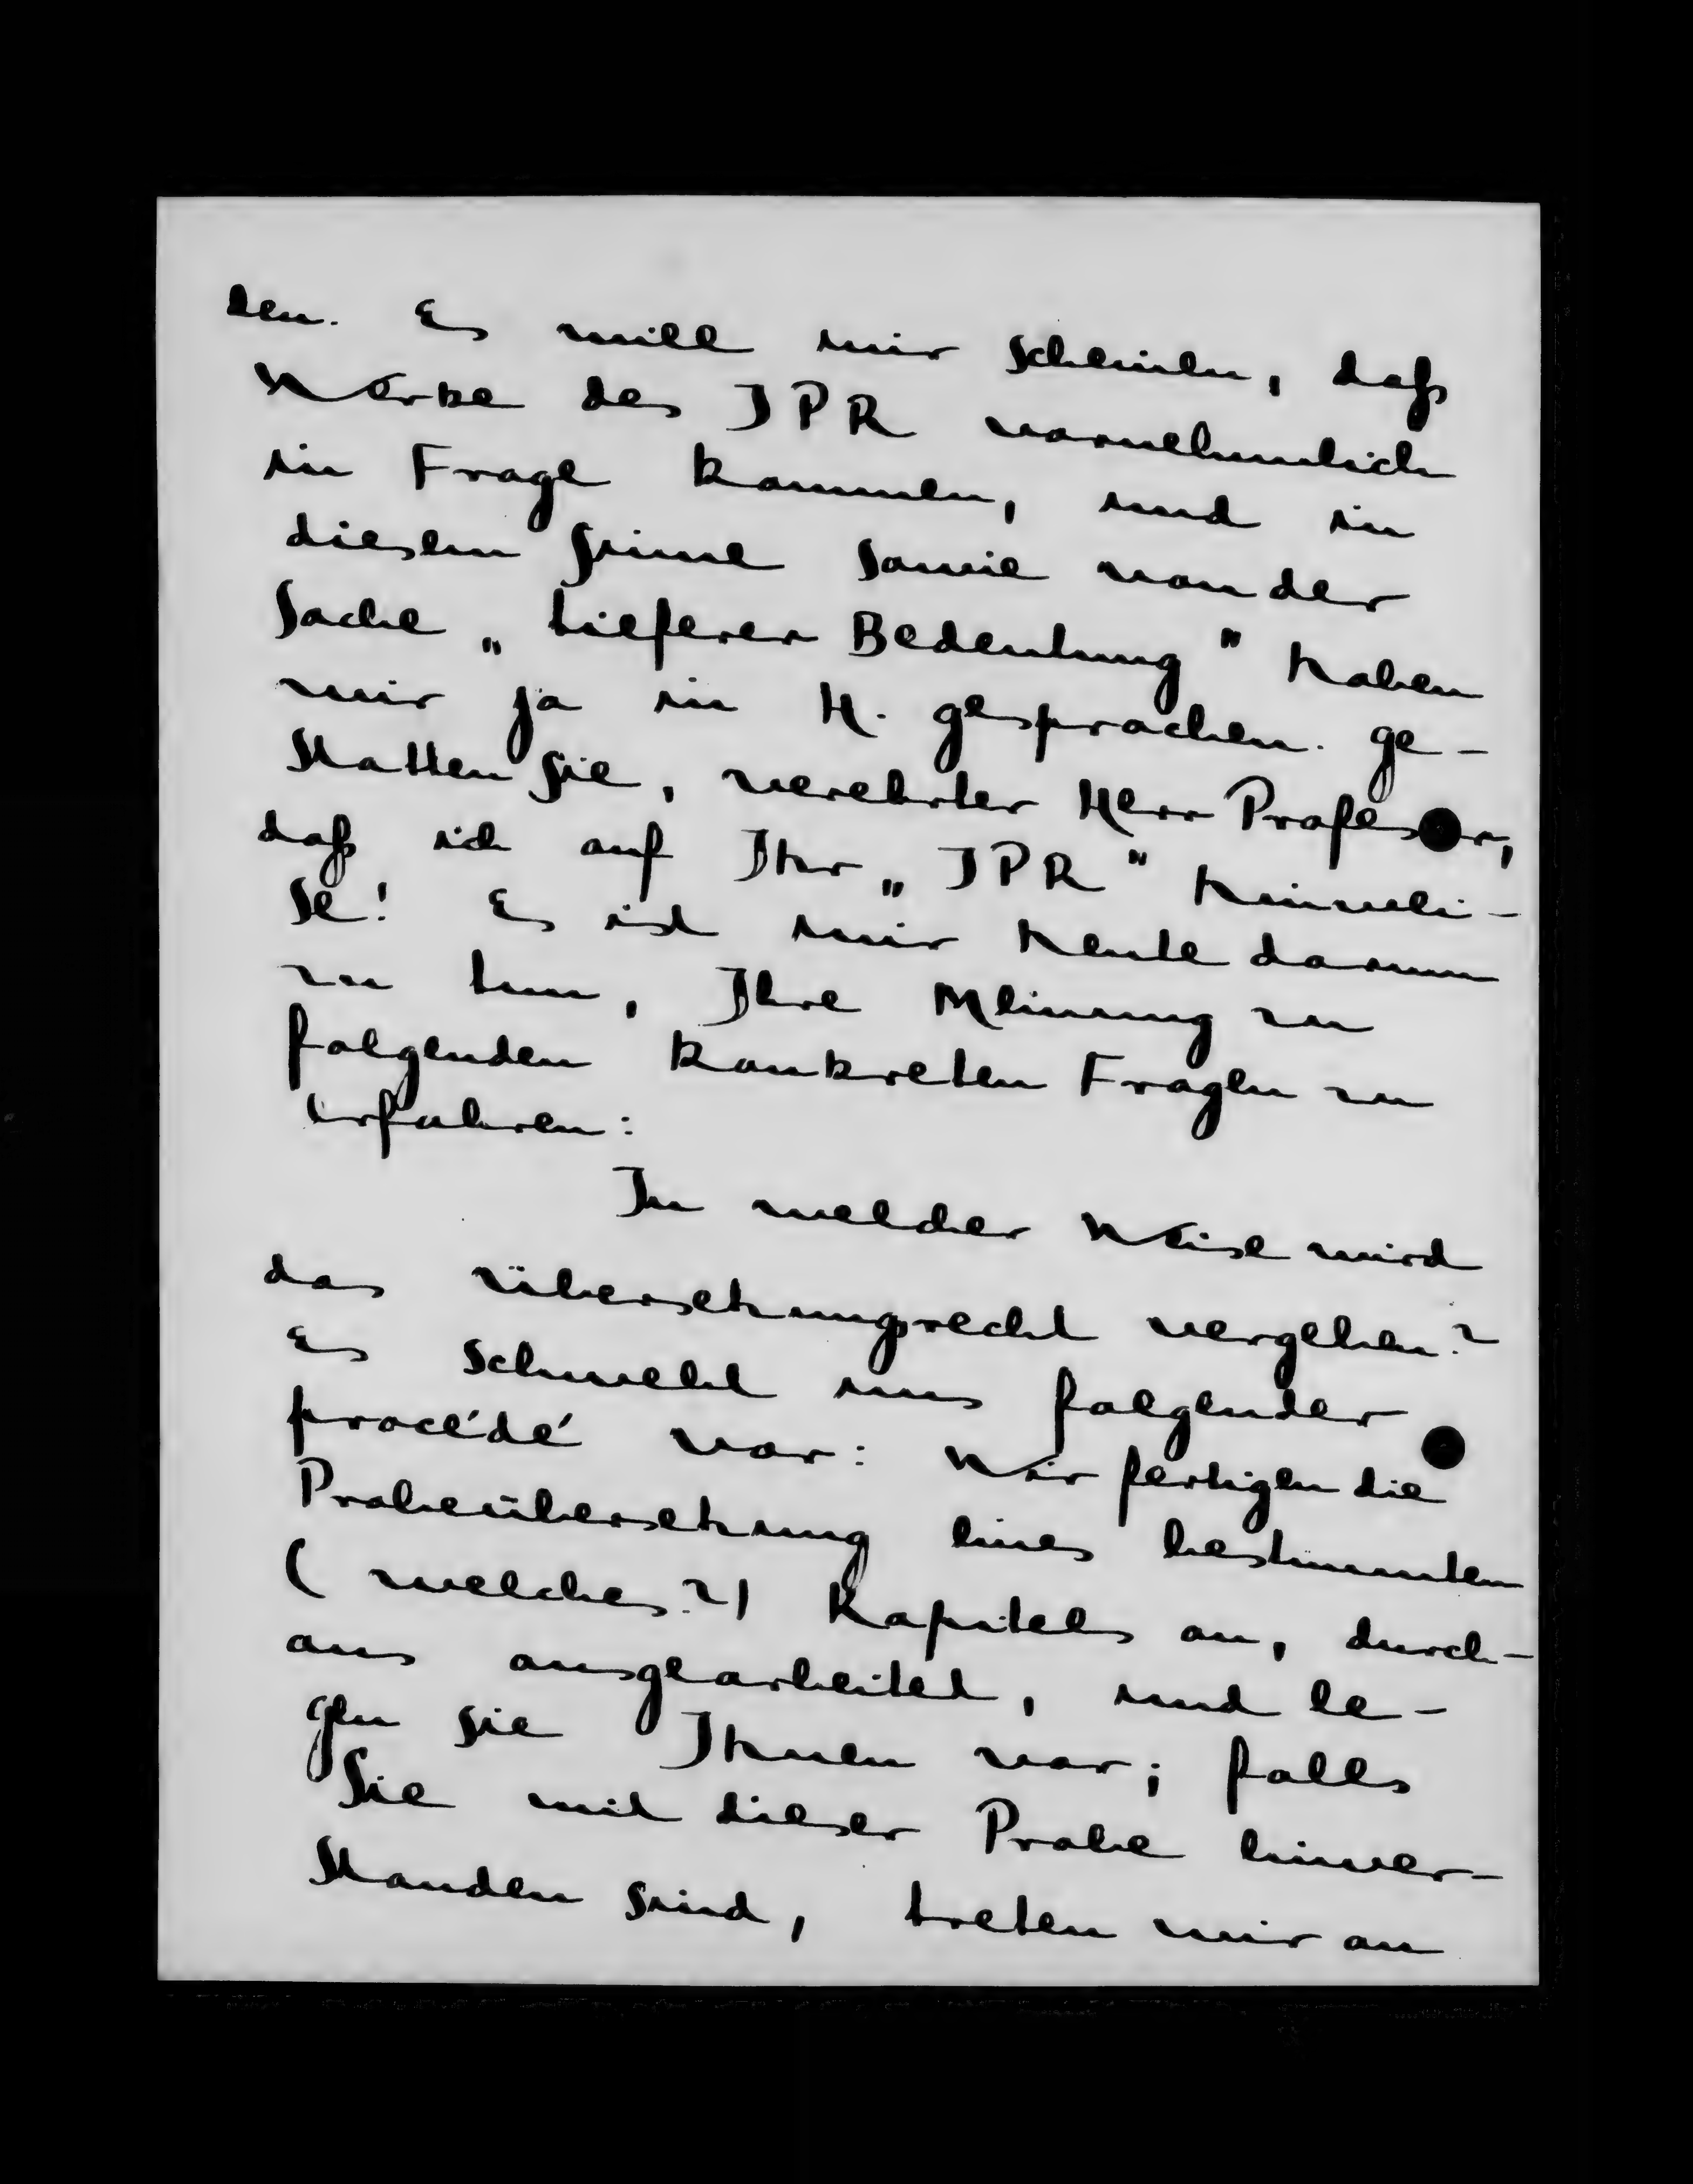 den. Es will mir scheinen, daß
Werke des JPR vornehmlich
in Frage kommen, und in
diesem Sinne sowie von der
Sache „tieferer Bedeutung" haben
wir ja in H. gesprochen. Ge-
statten Sie, verehrter Herr Professor,
daß ich auf Ihr „JPR" hinwei-
se! Es ist mir heute darum
zu tun, Ihre Meinung zu
folgenden konkreten Fragen zu
erfahren:
In welcher Weise wird
das Übersetzungsrecht vergeben?
Es schwebt uns folgender
procédé vor: Wir fertigen die
Probeübersetzung eines bestimmten
(welches?) Kapitels an, durch-
aus ausgearbeitet, und le-
gen sie Ihnen vor; falls
Sie mit dieser Probe einver-
standen sind, treten wir an